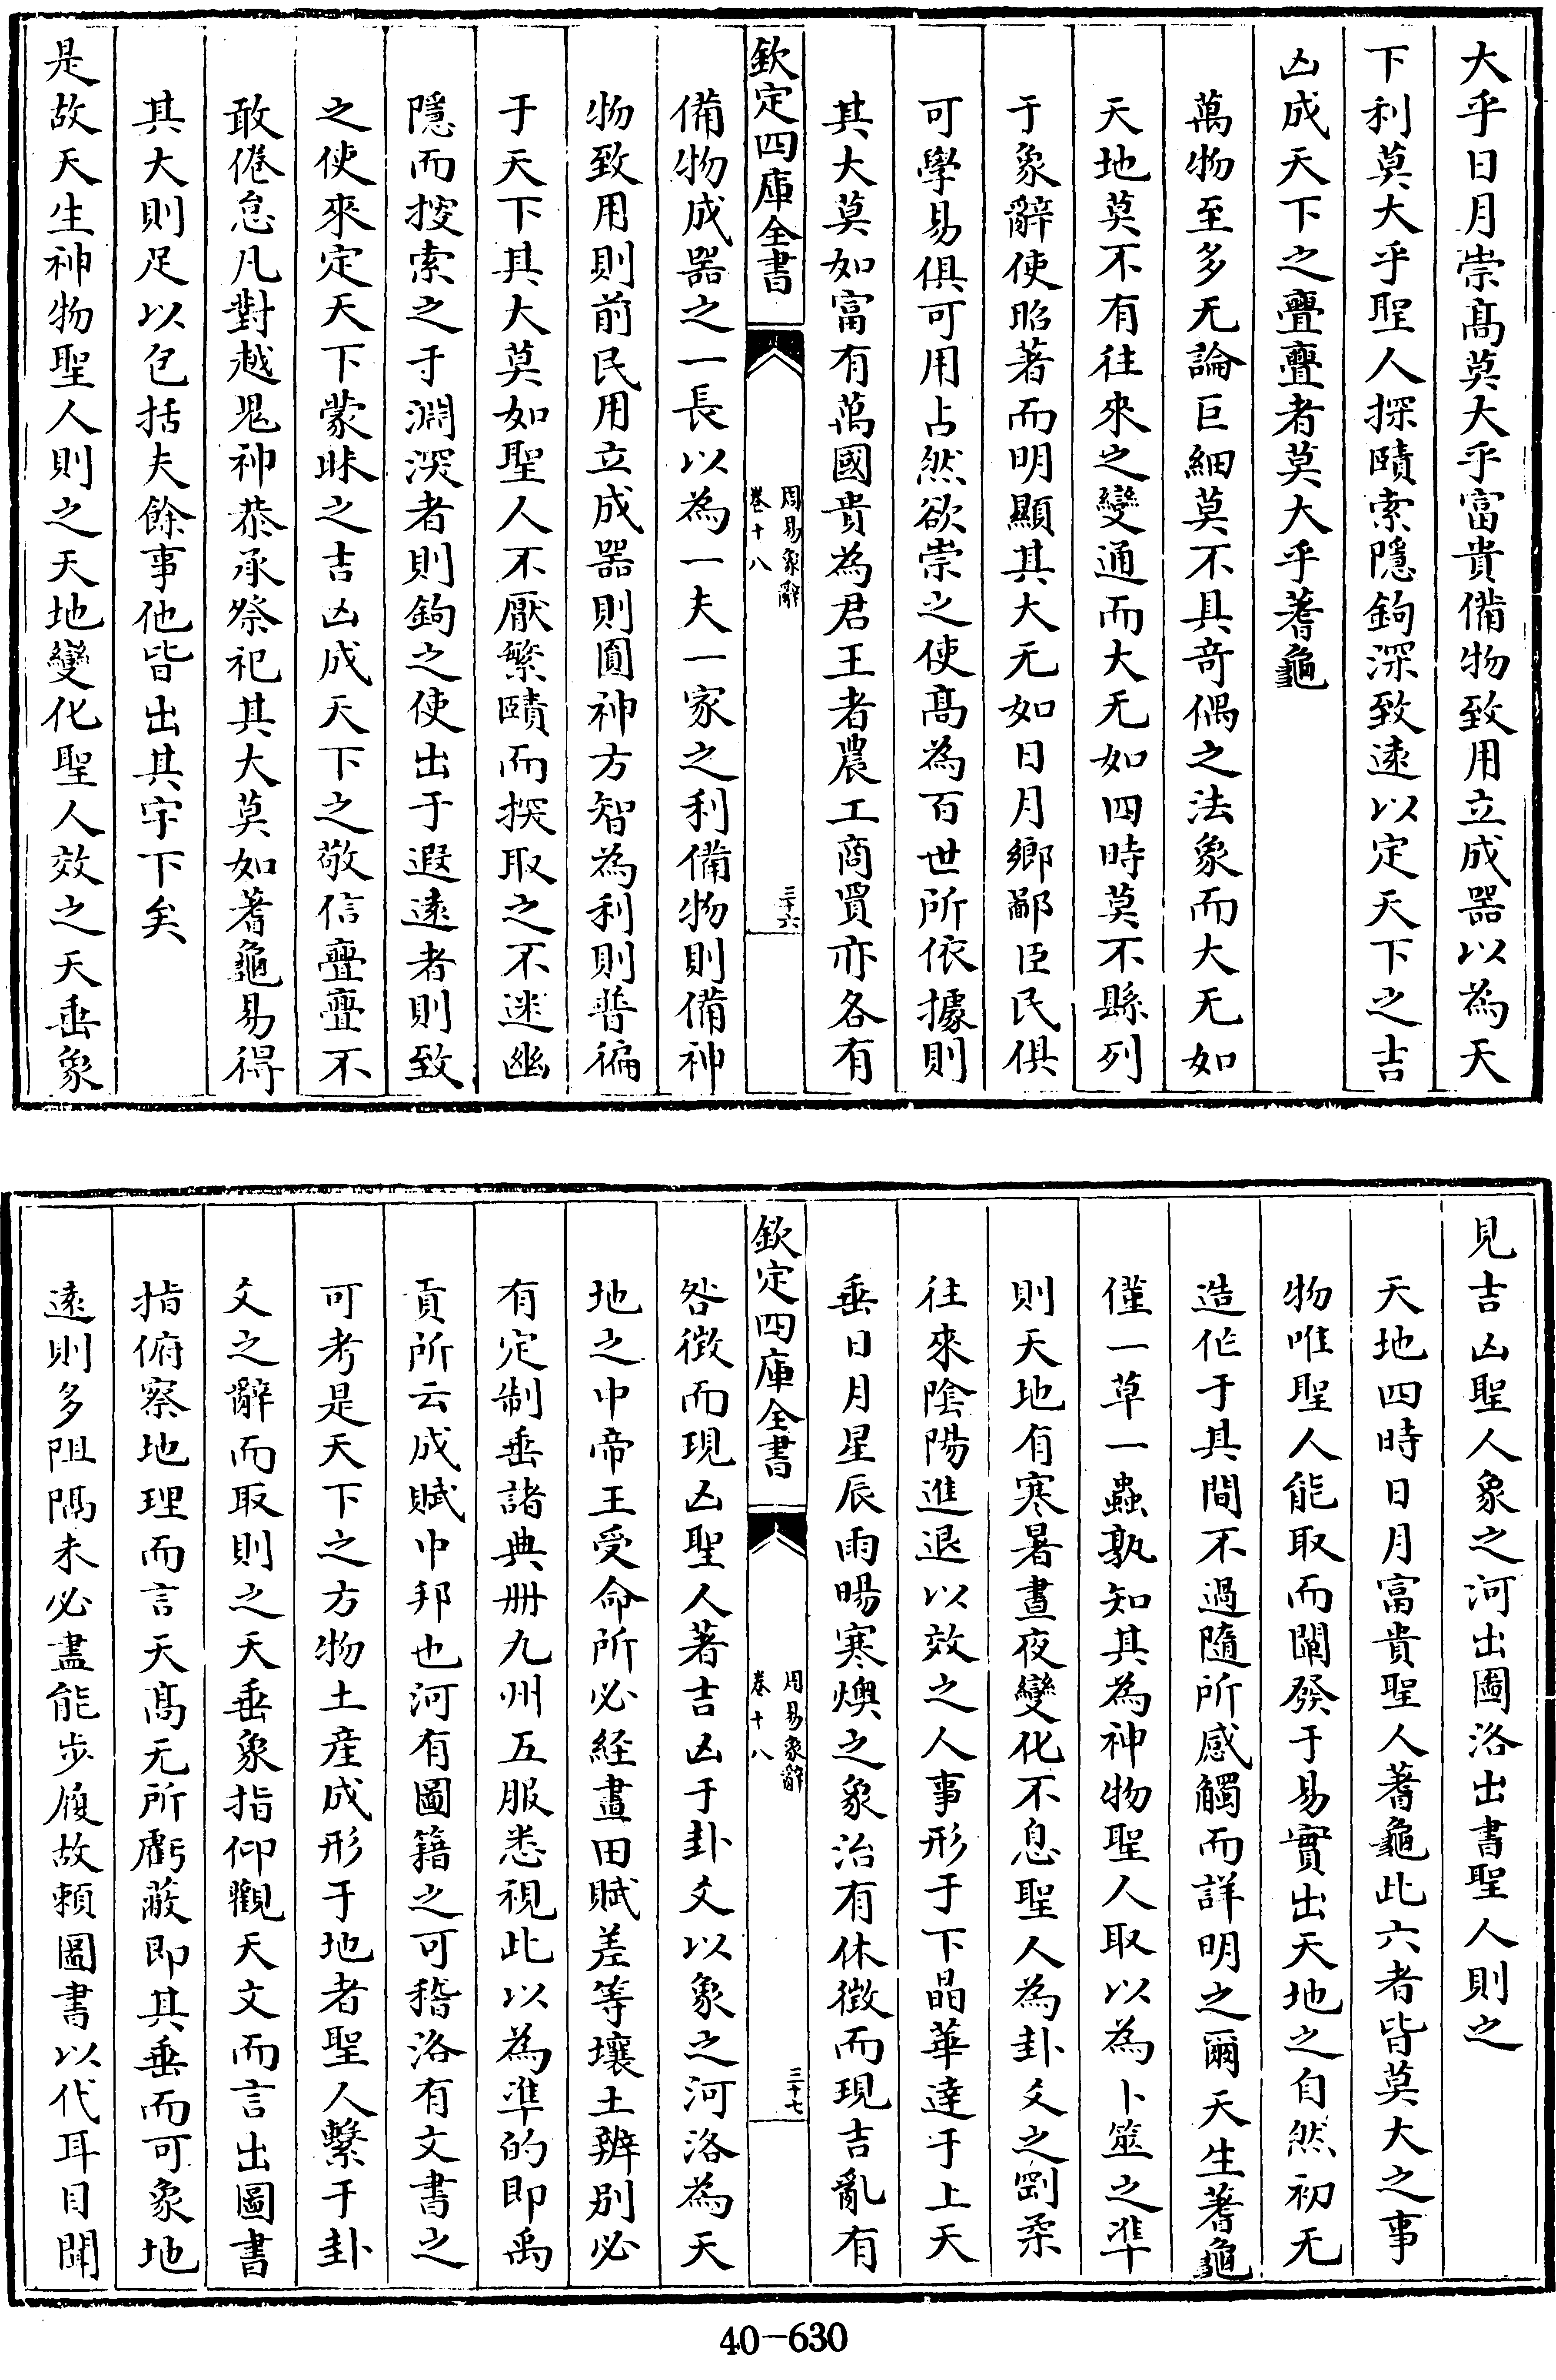 大乎日月崇髙莫大乎富貴備物致用立成器以為天
下利莫大乎聖人探賾索隱鉤深致逺以定天下之吉
凶成天下之亹亹者莫大乎蓍龜
萬物至多无論巨細莫不具奇偶之法象而大无如
天地莫不有往來之變通而大无如四時莫不縣列
于象辭使昭著而明顯其大无如日月鄉鄙臣民俱
可學易俱可用占然欲崇之使髙為百世所依據則
其大莫如富有萬國貴為君王者農工商賈亦各有
欽定四庫全書
周易象辭
卷十八
三十六
備物成器之一長以為一夫一家之利備物則備神
物致用則前民用立成器則圓神方智為利則普徧
于天下其大莫如聖人不厭繁賾而探取之不迷幽
隱而搜索之于淵深者則鉤之使出于遐逺者則致
之使來定天下蒙昧之吉凶成天下之敬信亹亹不
敢倦怠凡對越鬼神恭承祭祀其大莫如蓍龜易得
其大則足以包括夫餘事他皆出其宇下矣
是故天生神物聖人則之天地變化聖人效之天垂象
見吉凶聖人象之河出圖洛出書聖人則之
天地四時日月富貴聖人蓍龜此六者皆莫大之事
物唯聖人能取而闡發于易實出天地之自然初无
造作于其間不過隨所感觸而詳明之爾天生蓍龜
僅一草一蟲孰知其為神物聖人取以為卜筮之準
則天地有寒暑晝夜變化不息聖人為卦爻之剛柔
往來陰陽進退以效之人事形于下晶華達于上天
垂日月星辰雨暘寒燠之象治有休徴而現吉亂有
欽定四庫全書
周易象辭
卷十八
三十七
咎徴而現凶聖人著吉凶于卦爻以象之河洛為天
地之中帝王受命所必經畫田賦差等壤土辨别必
有定制垂諸典册九州五服悉視此以為準的即禹
貢所云成賦中邦也河有圖籍之可稽洛有文書之
可考是天下之方物土産成形于地者聖人繫于卦
爻之辭而取則之天垂象指仰觀天文而言出圖書
指俯察地理而言天髙无所虧蔽即其垂而可象地
逺則多阻隔未必盡能步履故頼圖書以代耳目聞
40-630